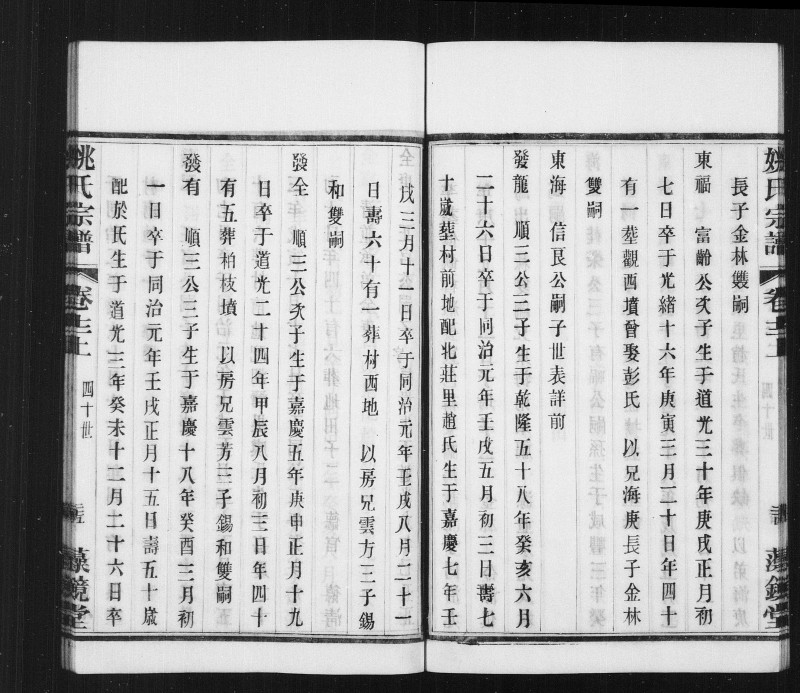 姚氏宗譜
卷三上
四十世
藻鏡堂
長子金林雙嗣
東福 富齡公次子生于道光三十年庚戌正月初
七日卒于光緒十六年庚寅三月二十日年四十
有一塟觀西墳曾娶彭氏 以兄海庚長子金林
雙嗣
東海 信艮公嗣子世表詳前
發龍 順三公三子生于乾隆五十八年癸亥六月
二十六日卒于同治元年壬戌五月初三日壽七
十歲塟村前地配北莊里趙氏生于嘉慶七年壬
戌三月十 日卒于同治元年壬戌八月二十一
日壽六十有一葬村西地 以房兄雲方三子錫
和雙嗣
發全 順三公次子生于嘉慶五年庚申正月十九
日卒于道光二十四年甲辰八月初三日年四十
有五葬柏枝墳 以房兄雲芳三子錫和雙嗣
發有 順三公三子生于嘉慶十八年癸酉三月初
一日卒于同治元年壬戌正月十五日壽五十歲
配於氏生于道光三年癸未十二月二十六日卒
姚氏宗譜
四十世
藻鏡堂